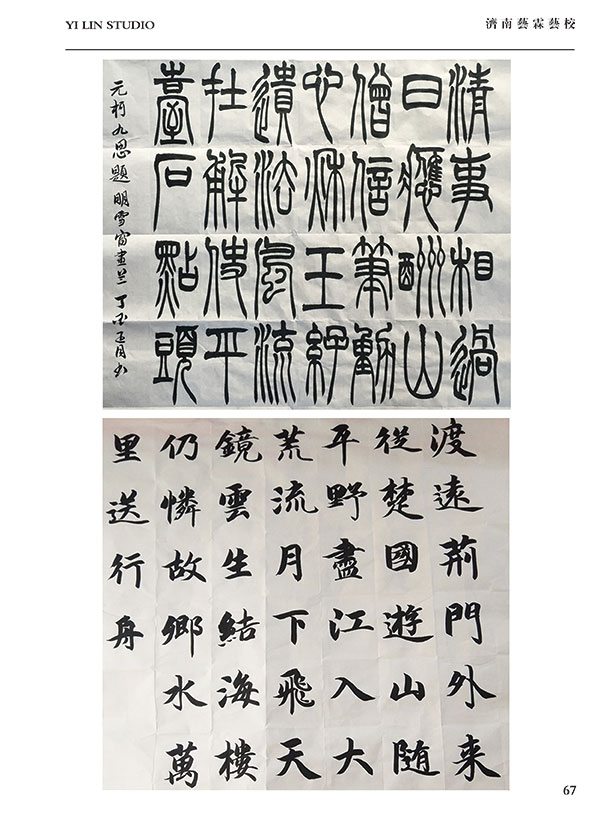 YI LIN STUDIO
濟南藝霖藝校
清事相過
日應酬山
僧信筆動
秋王孫
遺法風流
在解使平
臺石點頭
元柯九思題明雪窗畫兰丁酉正月书
渡遠荊門外来
從楚國遊山随
平野盡江入大
荒流月下飛天
鏡雲生結海樓
仍憐故鄉水萬
里送行舟
67